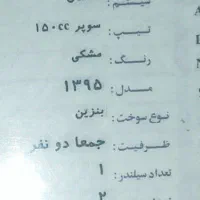 تیپ: سوپر ۱۵۰cc
رنگ: مشکی
مدل: ۱۳۹۵
نوع سوخت: بنزین
ظرفیت: جمعا دو نفر
تعداد سیلندر: ۱
۲